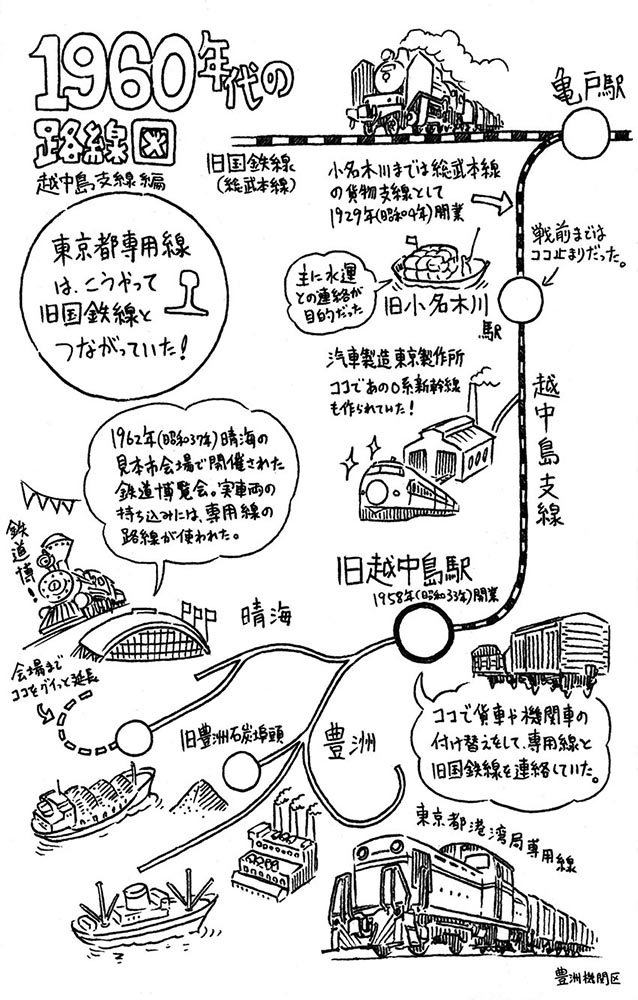 1960年代の
路線図
越中島支線編
東京都専用線
は、こうやって
旧国鉄線と
つながっていた!
旧国鉄線
(総武本線)
亀戸駅
小名木川までは総武本線
の貨物支線として
1929年(昭和4年)開業
戦前までは
ココ止まりだった。
主に水運
との連絡が
目的だった
旧小名木川
駅
汽車製造東京製作所
ココであの0系新幹線
も作られていた!
越中島支線
1962年(昭和37年)晴海の
見本市会場で開催された
鉄道博覧会。実車両の
持ち込みには、専用線の
路線が使われた。
鉄道博!
旧越中島駅
1958年(昭和33年)開業
晴海
会場まで
ココをグイっと延長
旧豊洲石炭埠頭
豊洲
ココで貨車や機関車の
付け替えをして、専用線と
旧国鉄線を連絡していた。
東京都港湾局専用線
豊洲機関区